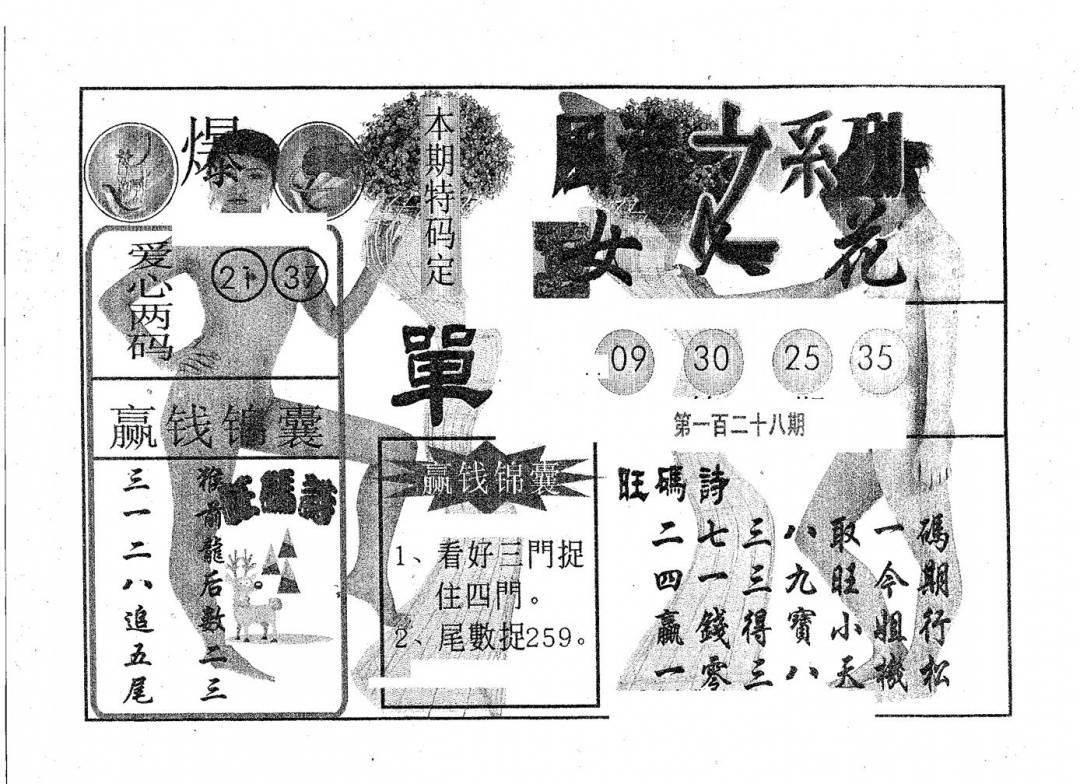 爆
爱心两码
21 37
赢钱锦囊
猴前龍后数二三
三一二八追五尾
旺碼詩
本期特码定
單
赢钱锦囊
1、看好三門捉
住四門。
2、尾數捉259。
系列
女 花
09 30 25 35
第一百二十八期
旺碼詩
二七三八取一碼
四一三九旺今期
贏錢得寶小姐行
一零三八天機松